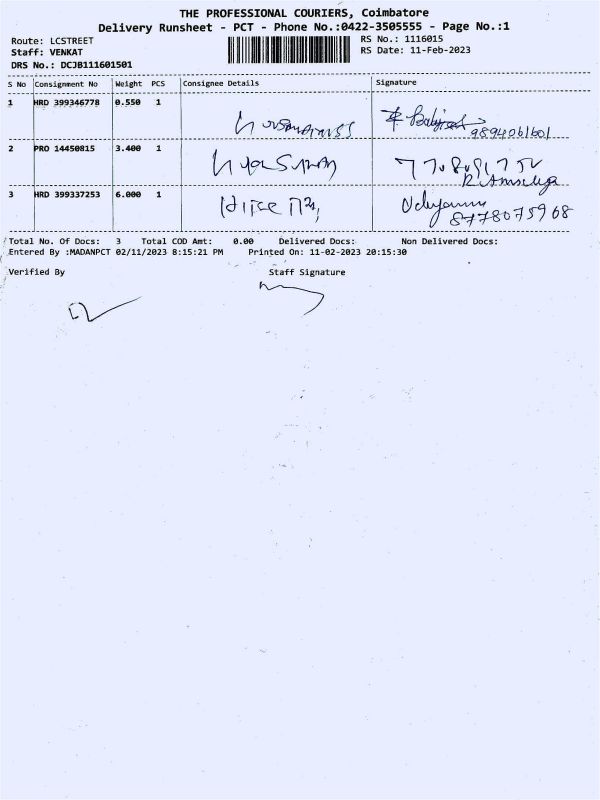 THE PROFESSIONAL COURIERS, Coimbatore
Delivery Runsheet - PCT - Phone No.:0422-3505555 - Page No.:1
Route: LCSTREET
Staff: VENKAT
DRS No.: DCJB111601501
RS No.: 1116015
RS Date: 11-Feb-2023
S No Consignment No Weight PCS Consignee Details Signature
1 HRD 399346778 0.550 1
9894061601
2 PRO 14450815 3.400 1
3 HRD 399337253 6.000 1
8778075968
Total No. Of Docs: 3 Total COD Amt: 0.00 Delivered Docs: Non Delivered Docs:
Entered By :MADANPCT 02/11/2023 8:15:21 PM Printed On: 11-02-2023 20:15:30
Verified By Staff Signature